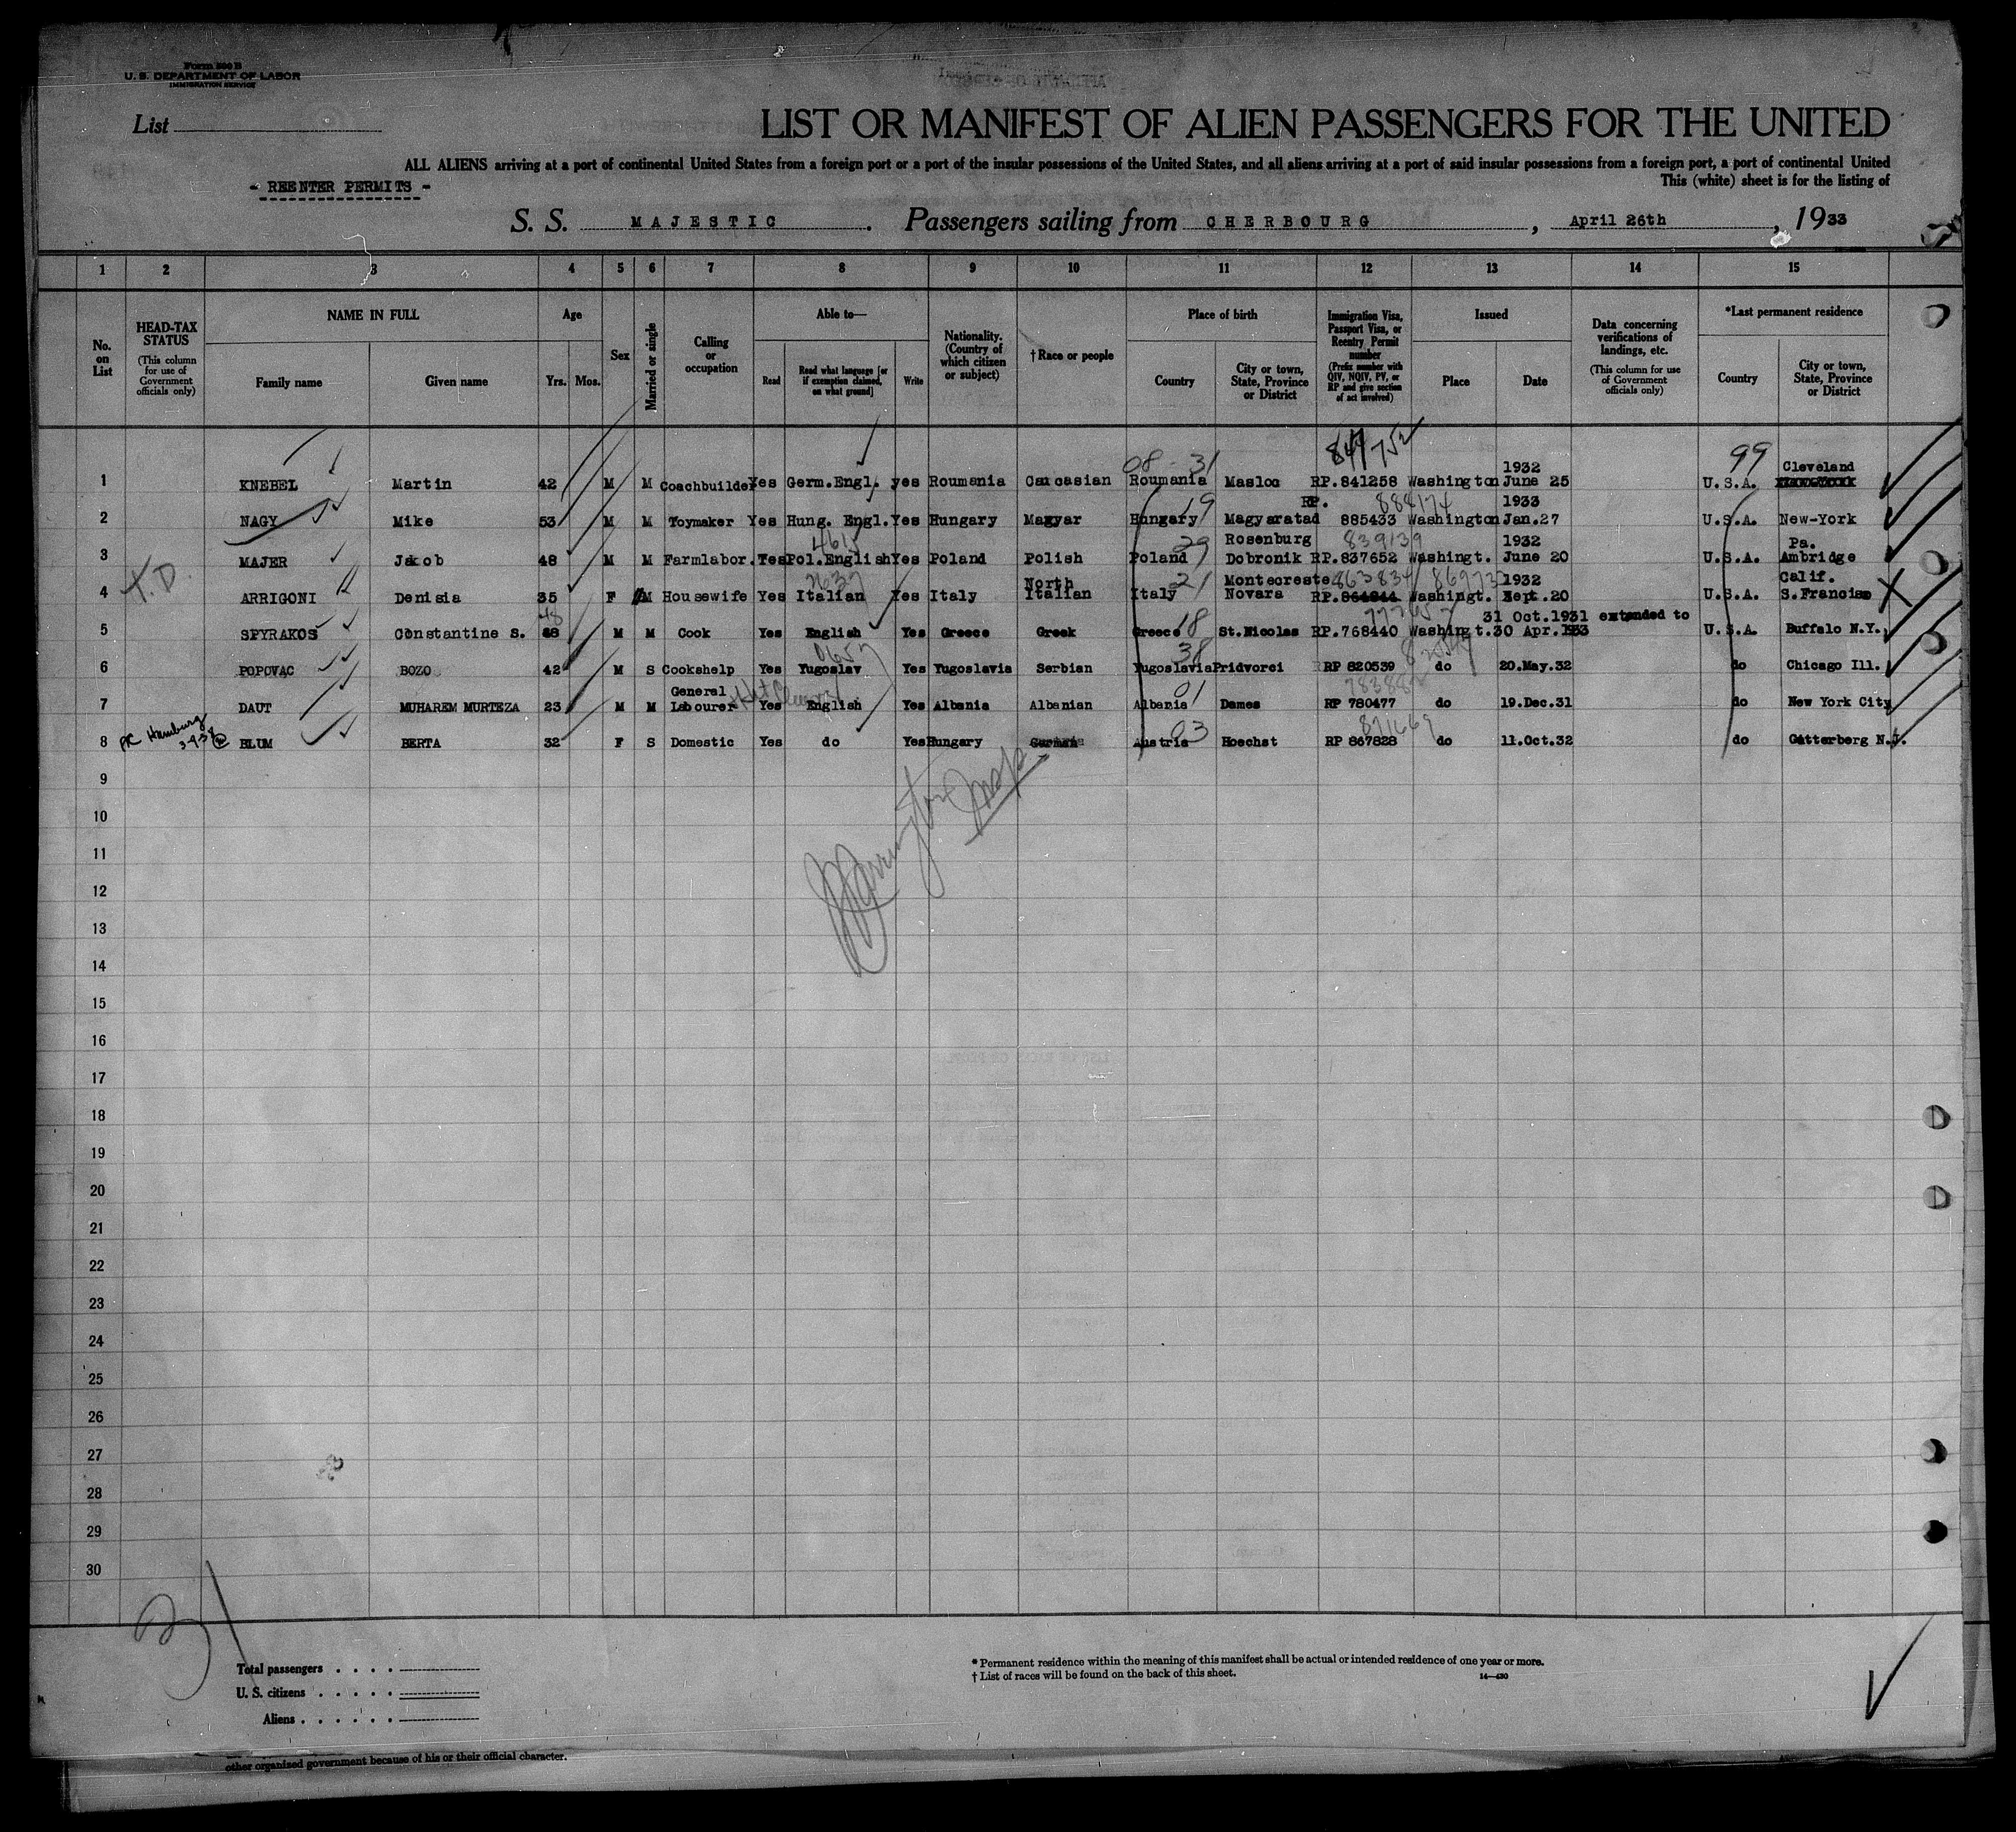 Form 500 B
U. S. DEPARTMENT OF LABOR
IMMIGRATION SERVICE
List
LIST OR MANIFEST OF ALIEN PASSENGERS FOR THE UNITED
ALL ALIENS arriving at a port of continental United States from a foreign port or a port of the insular possessions of the United States, and all aliens arriving at a port of said insular possessions from a foreign port, a port of continental United
- REENTER PERMITS -
This (white) sheet is for the listing of
S. S. MAJESTIC. Passengers sailing from CHERBOURG, April 26th, 1933
1 2 3 4 5 6 7 8 9 10 11 12 13 14 15
No. on List
HEAD-TAX STATUS (This column for use of Government officials only)
NAME IN FULL Family name Given name
Age Yrs. Mos.
Sex
Married or single
Calling or occupation
Able to— Read Read what language [or if exemption claimed, on what ground] Write
Nationality. (Country of which citizen or subject)
† Race or people
Place of birth Country City or town, State, Province or District
Immigration Visa, Passport Visa, or Reentry Permit number (Prefix number with QIV, NQIV, PV, or RP and give section of act involved)
Issued Place Date
Data concerning verifications of landings, etc. (This column for use of Government officials only)
*Last permanent residence Country City or town, State, Province or District
08 - 31 99
1 KNEBEL Martin 42 M M Coachbuilder Yes Germ.Engl. yes Roumania Caucasian Roumania Masloc RP.841258 Washington 1932 June 25 U.S.A. Cleveland
2 NAGY Mike 53 M M Toymaker Yes Hung. Engl. Yes Hungary Magyar Hungary 19 Magyaratad RP. 885433 888174 Washington 1933 Jan.27 U.S.A. New-York
3 MAJER Jakob 48 M M Farmlabor. Yes Pol.English Yes Poland Polish Poland 29 Rosenburg Dobronik RP.837652 839139 Washingt. 1932 June 20 U.S.A. Pa. Ambridge
4 T.D. ARRIGONI Denisia 35 F M Housewife Yes Italian Yes Italy North Italian Italy 21 Montecreste Novara 863834 Washingt. 1932 Sept.20 U.S.A. Calif. S.Francisc
5 SPYRAKOS Constantine S. 48 M M Cook Yes English Yes Greece Greek Greece 18 St.Nicolas RP.768440 Washingt. 31 Oct.1931 extended to 30 Apr.1933 U.S.A. Buffalo N.Y.
6 POPOVAC BOZO 42 M S Cookshelp Yes Yugoslav Yes Yugoslavia Serbian Yugoslavia 38 Pridvorci RP 820539 do 20.May.32 do Chicago Ill.
7 DAUT MUHAREM MURTEZA 23 M M General Labourer Yes English Yes Albania Albanian Albania 01 Dames RP 780477 do 19.Dec.31 do New York City
8 Hamburg BLUM BERTA 32 F S Domestic Yes do Yes Hungary German Austria 03 Hoechst RP 867828 871669 do 11.Oct.32 do Gutterberg N.J.
9
10
11
12
13
14
15
16
17
18
19
20
21
22
23
24
25
26
27
28
29
30
Total passengers
U. S. citizens
Aliens
* Permanent residence within the meaning of this manifest shall be actual or intended residence of one year or more.
† List of races will be found on the back of this sheet.
14—430
other organized government because of his or their official character.